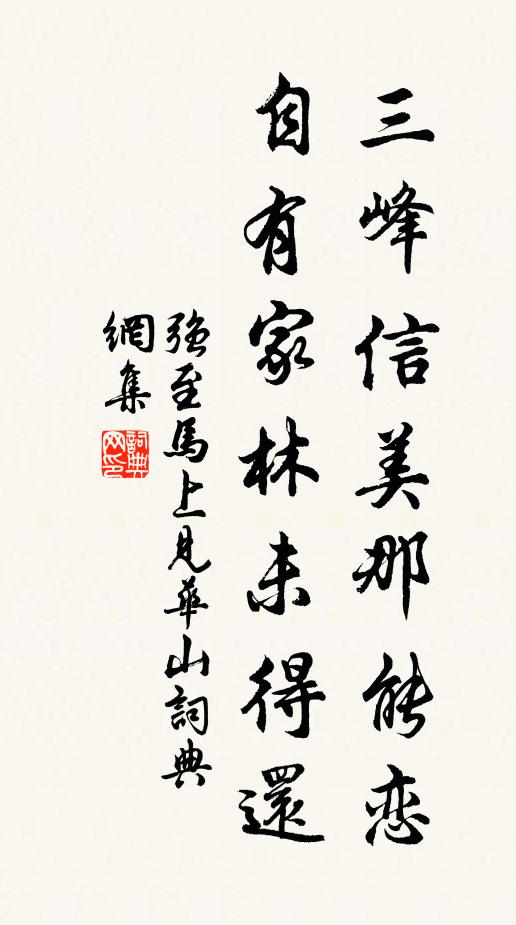 三峰信美那能恋
自有家林未得還
強至馬上見華山詞典
網集
詞典
网印